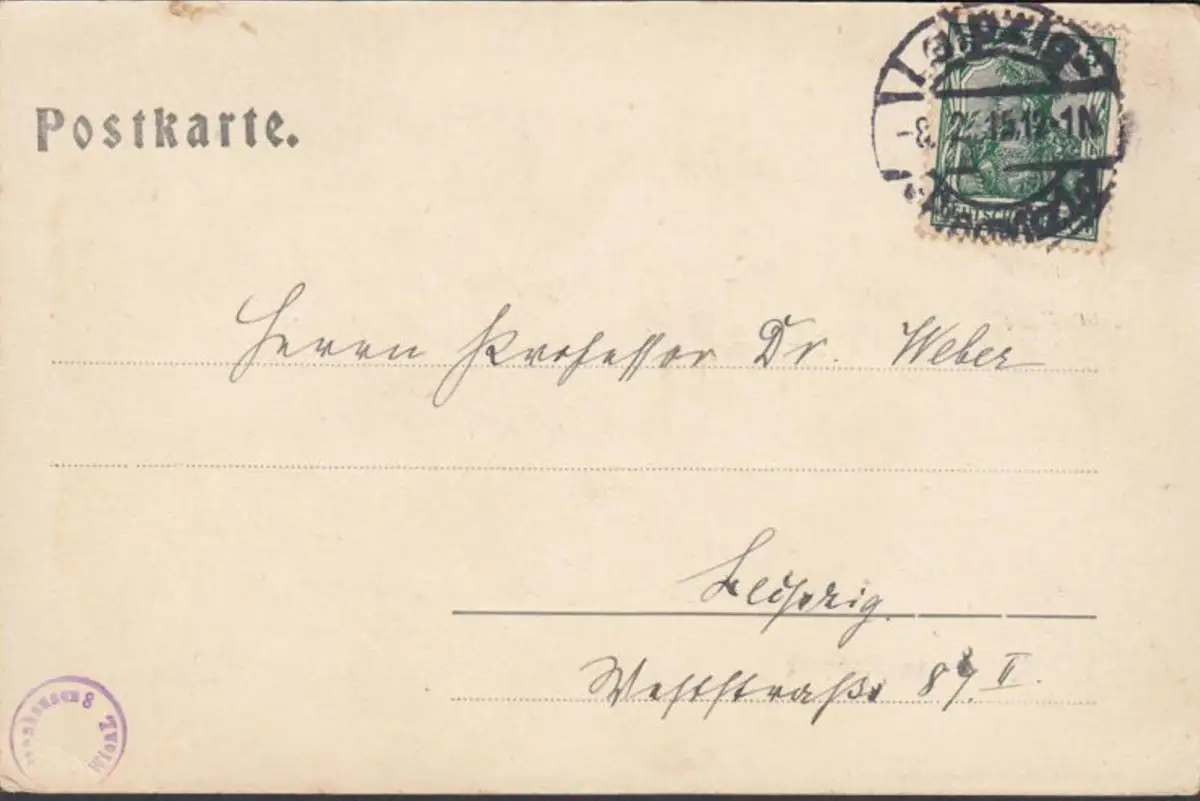 Postkarte.
Leipzig
-8. 2. 15. 12-1N
DEUTSCHES REICH
Herrn Professor Dr. Weber
Leipzig.
Weststraße 87. II.